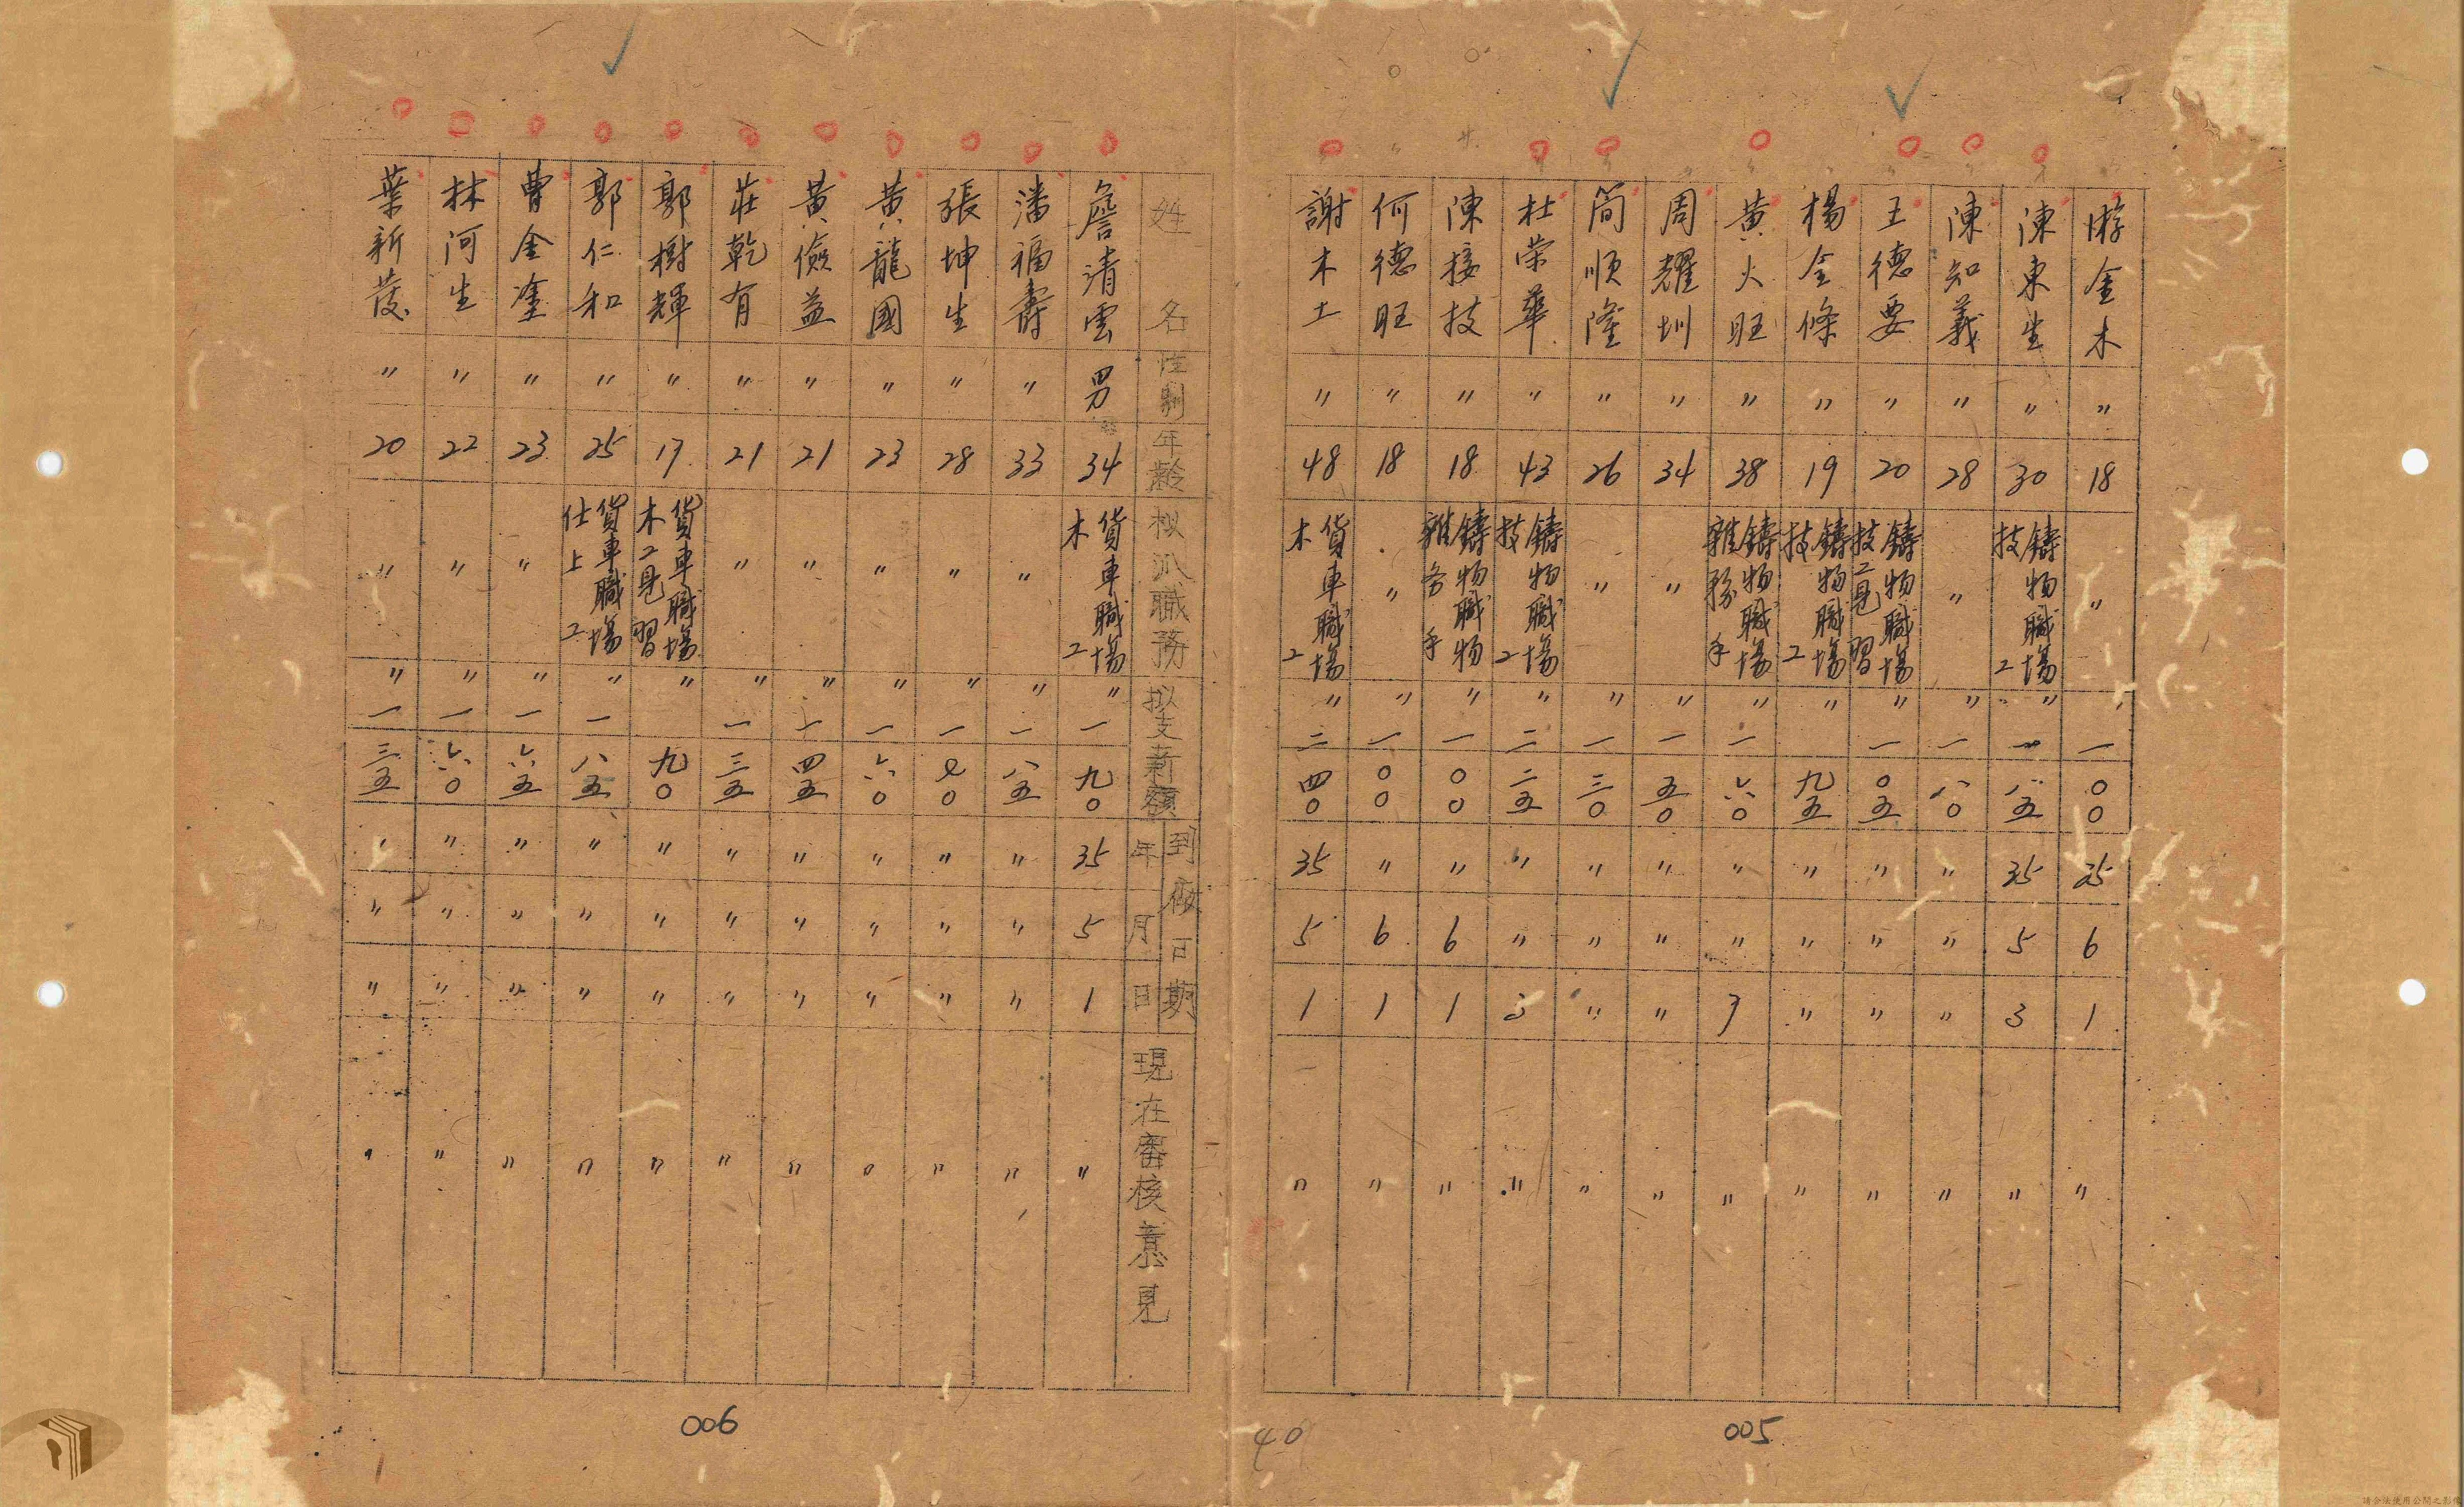 游金木 〃 18 〃 〃 一〇〇 25 6 1 〃
陳東生 〃 30 鑄物職場技工 〃 一八五 35 5 3 〃
陳知義 〃 28 〃 〃 一八〇 〃 〃 〃 〃
王德要 〃 20 鑄物職場技工見習 〃 一〇五 〃 〃 〃 〃
楊金條 〃 19 鑄物職場技工 〃 九五 〃 〃 〃 〃
黃火旺 〃 38 鑄物職場雜務手 〃 一六〇 〃 〃 7 〃
周耀圳 〃 34 〃 〃 一五〇 〃 〃 〃 〃
簡順隆 〃 26 〃 〃 一三〇 〃 〃 〃 〃
杜荣華 〃 43 鑄物職場技工 〃 二二五 〃 〃 3 〃
陳接技 〃 18 鑄物職物雜务手 〃 一〇〇 〃 6 1 〃
何德旺 〃 18 〃 〃 一〇〇 〃 6 1 〃
謝木土 〃 48 貨車職場木工 〃 二四〇 35 5 1 〃
005
40
姓名 性別 年齡 拟派職務 拟支薪額 到廠日期 年 月 日 現在審核意見
詹清雲 男 34 貨車職場木工 〃 一九〇 35 5 1 〃
潘福壽 〃 33 〃 〃 一八五 〃 〃 〃 〃
張坤生 〃 28 〃 〃 一七〇 〃 〃 〃 〃
黃龍國 〃 23 〃 〃 一六〇 〃 〃 〃 〃
黃儉益 〃 21 〃 〃 一四五 〃 〃 〃 〃
莊乾有 〃 21 〃 〃 一三五 〃 〃 〃 〃
郭樹輝 〃 17 貨車職場木工見習 〃 九〇 〃 〃 〃 〃
郭仁和 〃 25 貨車職場仕上工 〃 一八五 〃 〃 〃 〃
曹金塗 〃 23 〃 〃 一六五 〃 〃 〃 〃
林河生 〃 22 〃 〃 一六〇 〃 〃 〃 〃
葉新發 〃 20 〃 〃 一三五 〃 〃 〃 〃
006